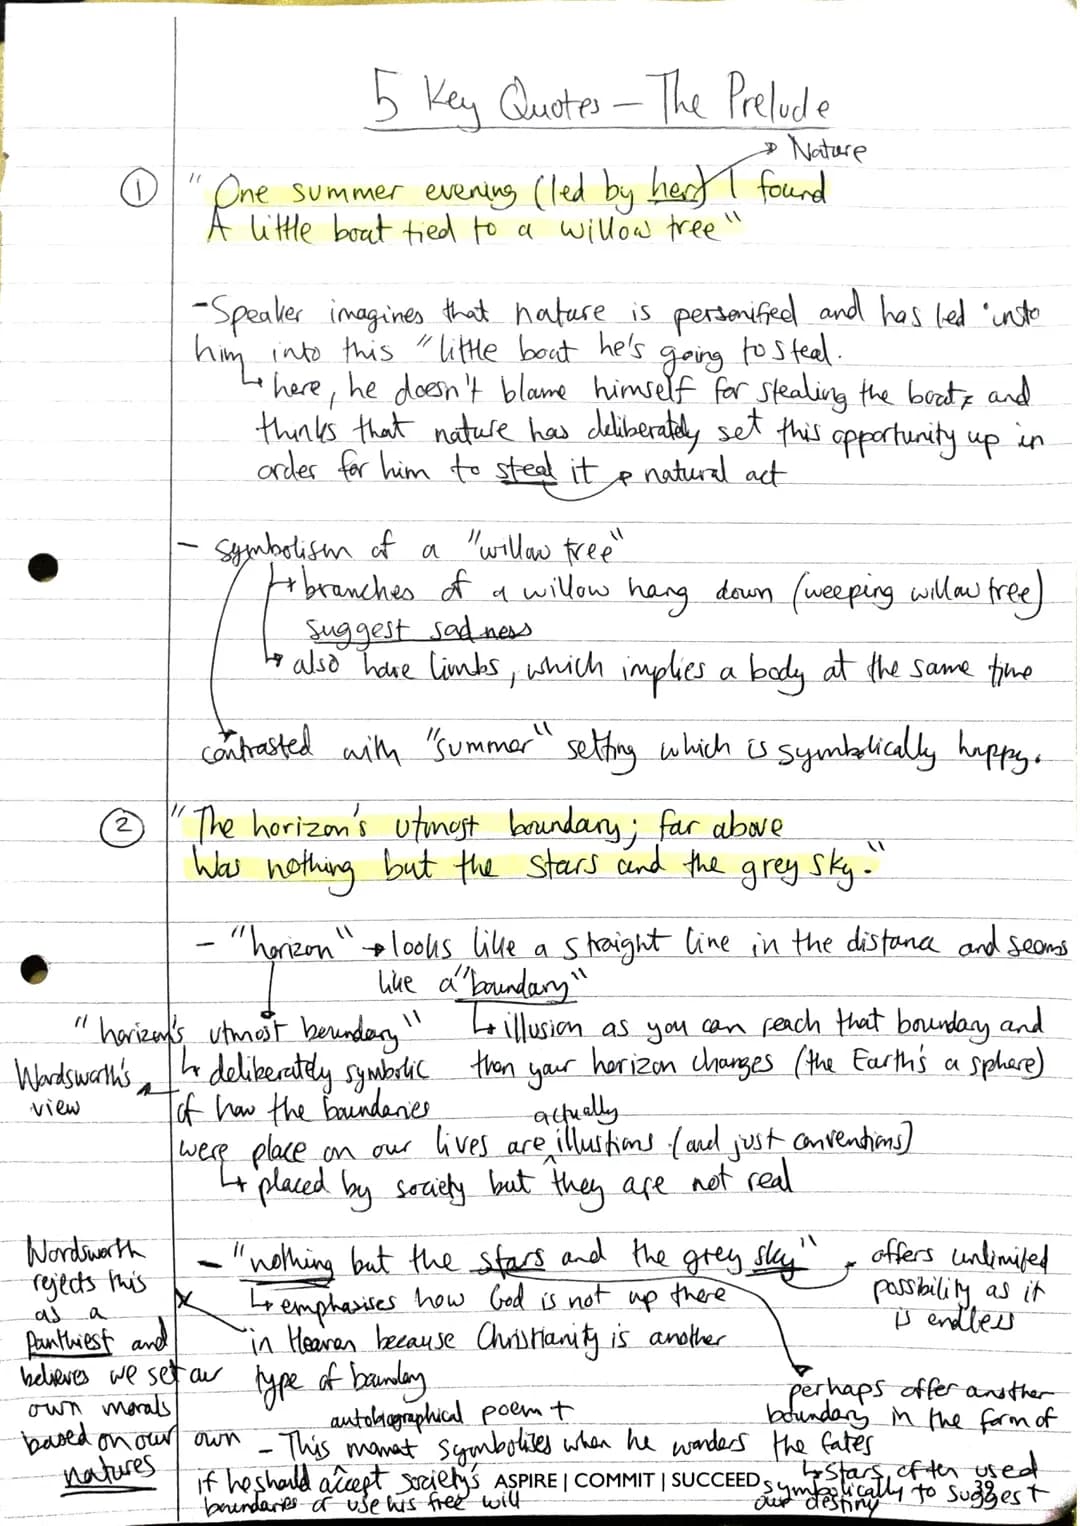 5 Key Quotes – The Prelude
→ Nature
① "One summer evening (led by her) I found
A little boat tied to a willow tree"
- Speaker imagines that nature is personified and has led
him into this "little boat he's going to steal.
↳ here, he doesn't blame himself for stealing the boat, and
thinks that nature has deliberately set this opportunity up in
order for him to steal it → natural act
- symbolism of a "willow tree"
↳ branches of a willow hang down (weeping willow tree)
suggest sadness
↳ also have limbs, which implies a body at the same time
contrasted with "summer" setting which is symbolically happy.
② "The horizon's utmost boundary; far above
Was nothing but the stars and the grey sky."
- "horizon" → looks like a straight line in the distance and seems
like a "boundary"
↳ illusion as you can reach that boundary and
then your horizon changes (the Earth's a sphere)
"horizon's utmost boundary"
↳ deliberately symbolic
of how the boundaries
were place on our lives are actually illustions (and just conventions)
↳ placed by society but they are not real
Wordsworth's
view
- "nothing but the stars and the grey sky"
↳ emphasises how God is not up there
in Heaven because Christianity is another
type of boundary
offers unlimited
possibility as it
is endless
Wordsworth
rejects this
as a
Panthiest and
believes we set our
own morals
based on our own
natures
perhaps offer another
boundary in the form of
the fates
↳ stars often used
symbolically to suggest
our destiny
autobiographical poem +
- This moment symbolises when he wonders
if he should accept society's
boundaries or use his free will
ASPIRE | COMMIT | SUCCEED
39